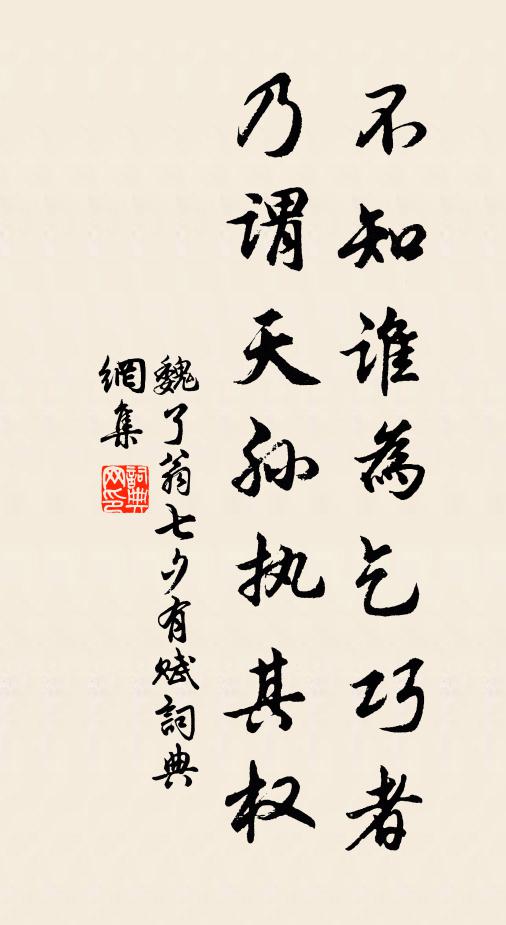 不知谁為乞巧者
乃谓天孙执其权
魏了翁七夕有赋詞典
網集
詞典网印